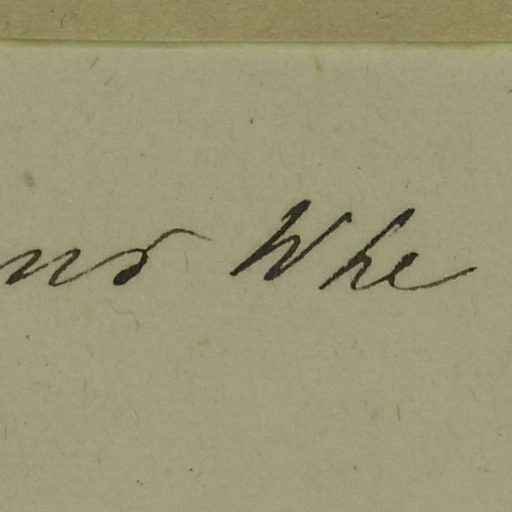 ns Whe